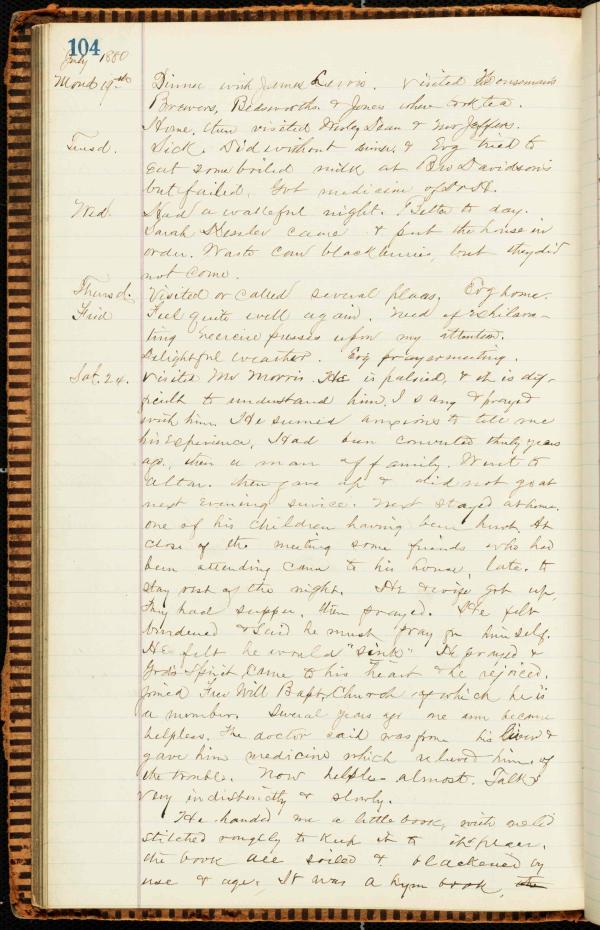 104
July 1880
Mond 19th Dinner with James Lewis. Visited
Brewers, & Jones where took tea.
Home, then visited Wesley Dean & Mr Jeffers.
Tuesd. Sick. Did without dinner, & Evg tried to
eat some boiled milk at Bro Davidson's
but failed. Got medicine of Dr H.
Wed. Had a wakeful night. Better to day.
Sarah came & put the house in
order. Was to can blackberries, but they did
not come.
Thursd. Visited or called several places. Evg home.
Frid Feel quite well again. Need of exhilara-
ting exercise presses upon my attention.
Delightful weather. Evg prayermeeting.
Sat. 24. Visited Mr Morris. He is palsied, & it is dif-
ficult to understand him. I sang & prayed
with him. He seemed anxious to tell me
his experience. Had been converted thirty years
ago, then a man of family. Went to
altar. then gave up & did not go at
next evening service. Next stayed at home.
one of his children having been hurt. At
close of the meeting some friends who had
been attending came to his house, late. to
stay rest of the night. He & wife got up,
They had supper, then prayed. He felt
burdened & said he must pray for himself.
He felt he would "sink" He prayed &
God's Spirit came to his heart & he rejoiced.
Joined Free Will Bapt. Church of which he is
a member. Several years ago one arm became
helpless. The doctor said was from his liver &
gave him medicine which relieved him of
the trouble. Now helpless almost. Talks
very indistinctly & slowly.
He handed me a little book, with
stitched roughly to keep it to its place.
the book all soiled & blackened by
use & age. It was a hymn book, the